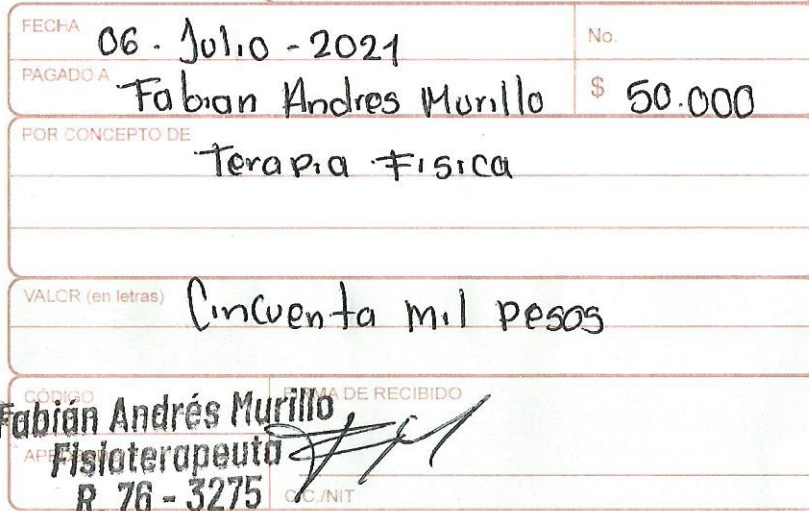 FECHA 06. Julio - 2021 No.
PAGADO A Fabian Andres Murillo $ 50.000
POR CONCEPTO DE Terapia Fisica
VALOR (en letras) Cincuenta mil pesos
CÓDIGO FIRMA DE RECIBIDO
Fabián Andrés Murillo
Fisioterapeuta
R. 76 - 3275 C.C./NIT